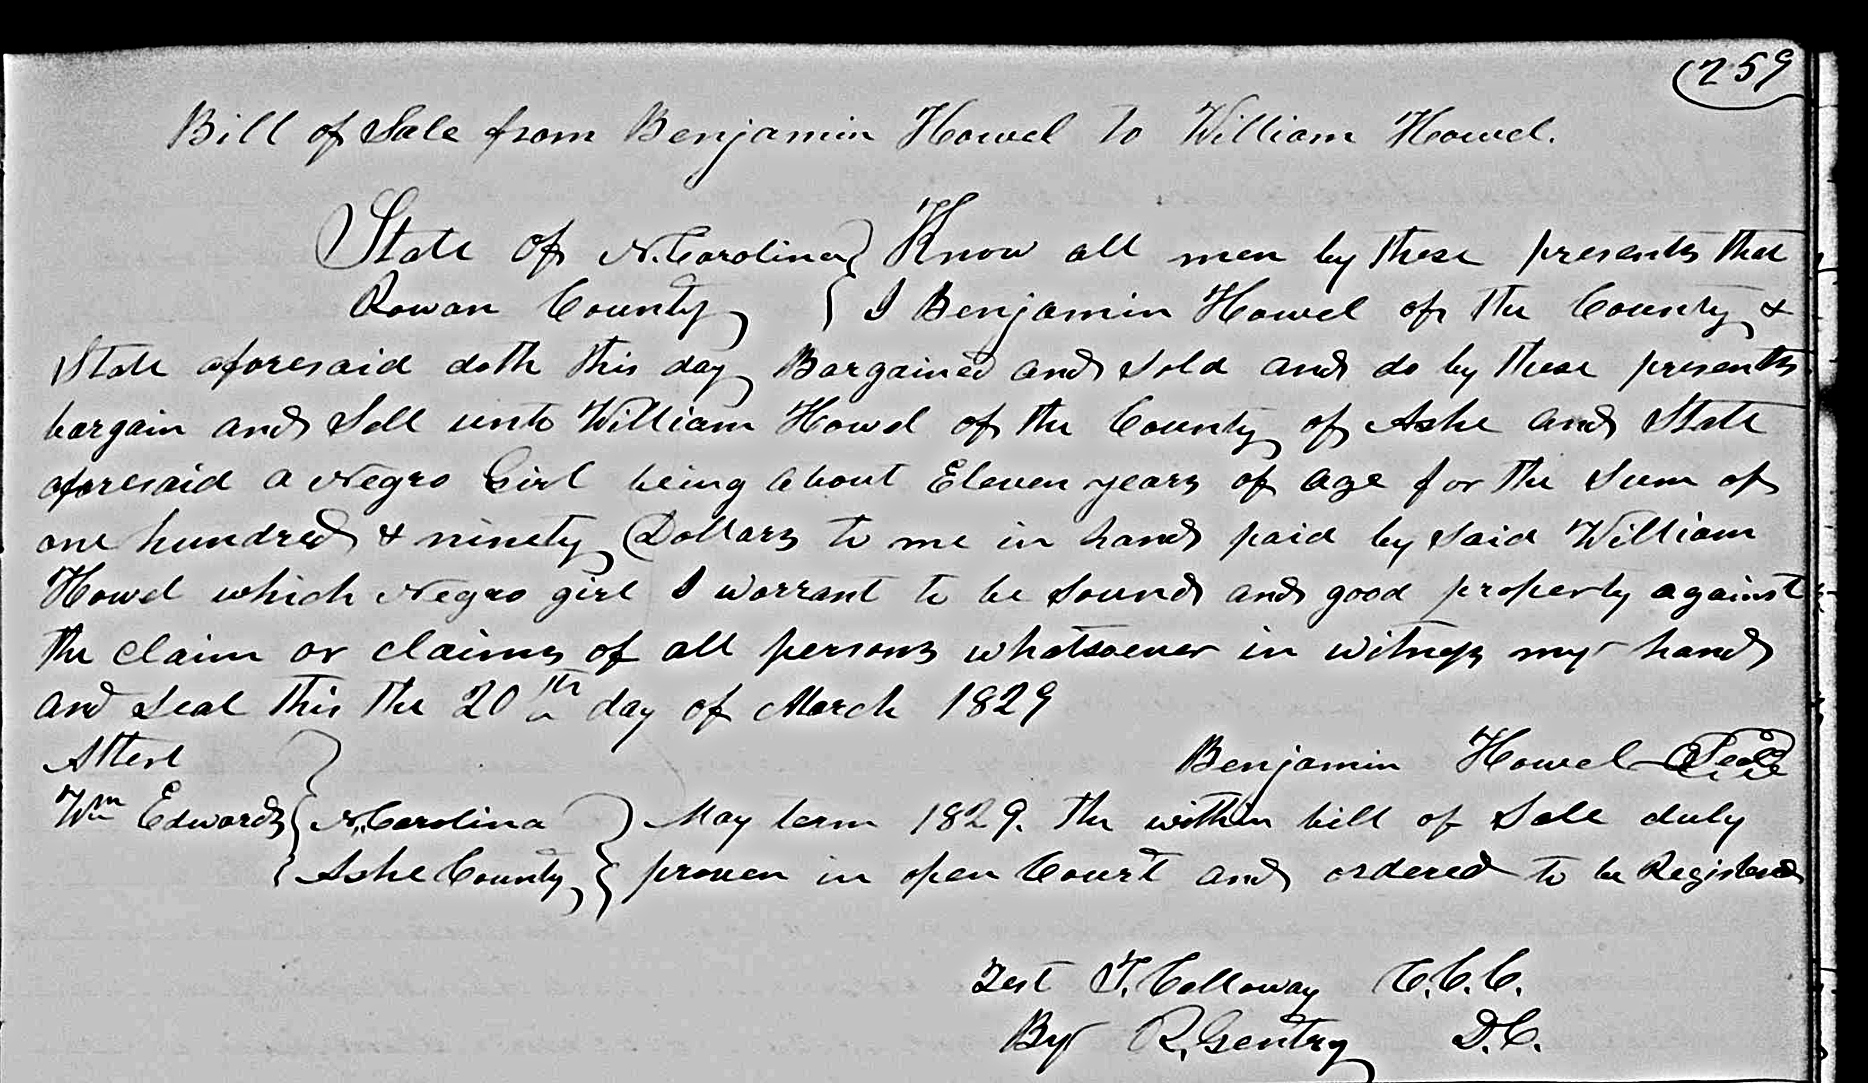 (259
Bill of Sale from Benjamin Howel to William Howel.
State of N. Carolina } Know all men by these presents that
Rowan County } I Benjamin Howel of the County &
State aforesaid doth this day Bargained and Sold and do by these presents
bargain and Sell unto William Howel of the County of Ashe and State
aforesaid a Negro Girl being about Eleven years of age for the Sum of
one hundred & ninety Dollars to me in hand paid by Said William
Howel which Negro girl I warrant to be Sound and good property against
the claim or claims of all persons whatsoever in witness my hand
and seal this the 20th day of March 1829
Attest } Benjamin Howel Seal
Wm Edwards { N. Carolina } May term 1829. The within bill of Sale duly
{ Ashe County } proven in open Court and ordered to be Registered
Test T. Calloway C.C.C.
By R. Gentry D.C.